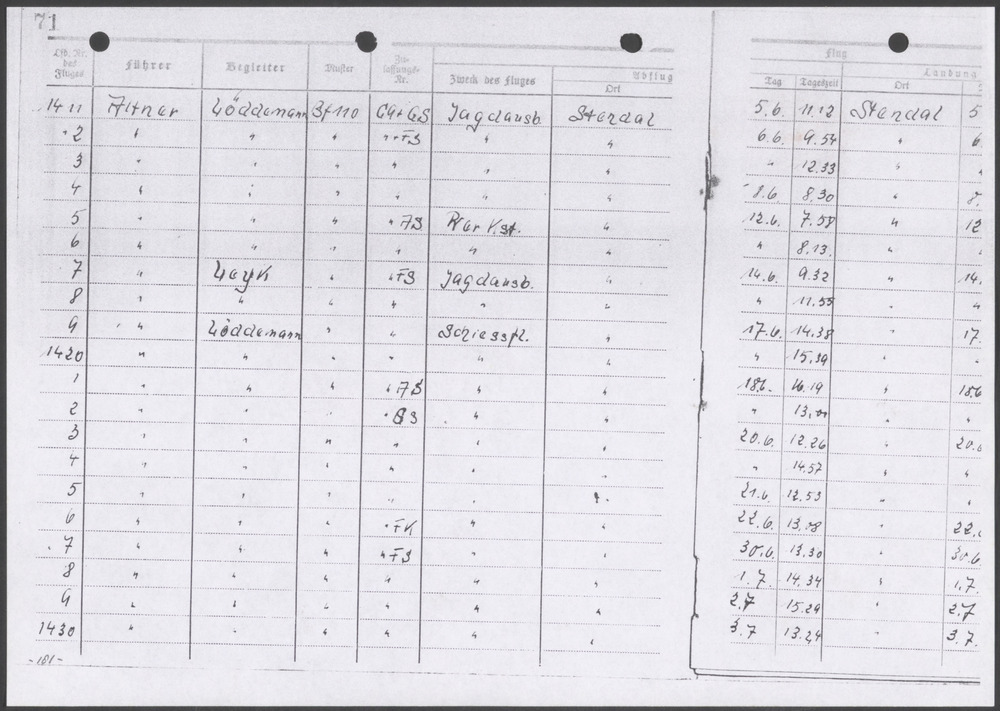 71
Lfd. Nr. des Fluges Führer Begleiter Muster Zulassungs-Nr. Zweck des Fluges Abflug Ort Flug Tag Tageszeit Landung Ort
1411 Altner Löddemann Bf 110 Jagdausb. Stendal 5.6. 11.12 Stendal 5
2 " " " "+FS " " 6.6. 9.54 " 6.
3 " " " " " " " 12.33 " "
4 " " " " " " 8.6. 8.30 " 8.
5 " " " "+FS " 12.6. 7.58 " 12
6 " " " " " " " 8.13. " "
7 " " "+FS Jagdausb. " 14.6. 9.32 " 14.
8 " " " " " " " 11.55 " "
9 " Löddemann " " Schiessfl. " 17.6. 14.38 " 17.
1420 " " " " " " " 15.39 " "
1 " " " "+FS " " 18.6. 16.19 " 18.6
2 " " " " " " "
3 " " " " " " 20.6. 12.26 " 20.6
4 " " " " " " " 14.57 " "
5 " " " " " " 21.6. 12.53 " "
6 " " " "+FK " " 22.6. 13.08 " 22.
7 " " " "+FS " " 30.6. 13.30 " 30.6
8 " " " " " " 1.7. 14.34 " 1.7.
9 " " " " " " 2.7 15.29 " 2.7
1430 " " " " " " 3.7 13.24 " 3.7.
-181-